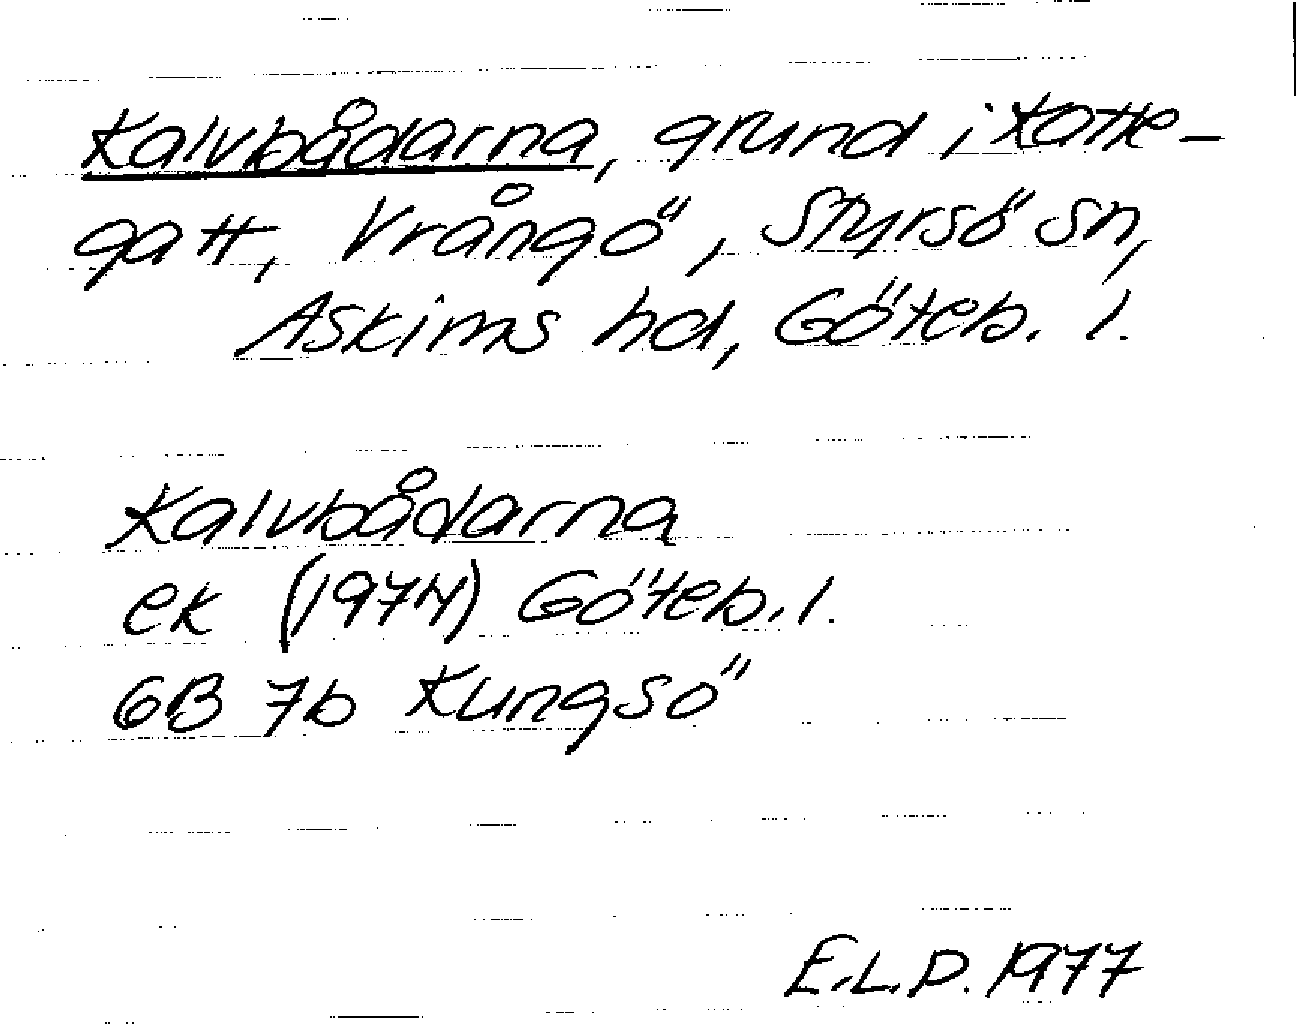 Kalvbådarna, grund i Katte-
gatt, Vrångö, Styrsö sn,
Askims hd, Göteb. l.
Kalvbådarna
ek (1974) Göteb. l.
6B 7b Kungsö
E.L.D. 1977